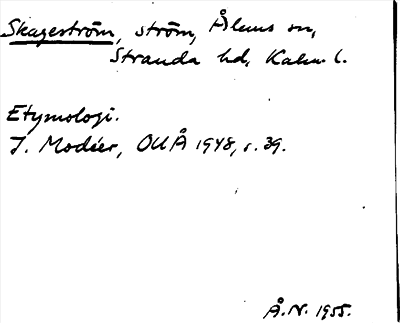 Skageström, ström, Ålems sn,
Stranda hd, Kalm. l.
Etymologi.
I. Modéer, OUÅ 1948, s. 39.
Å.N. 1955.